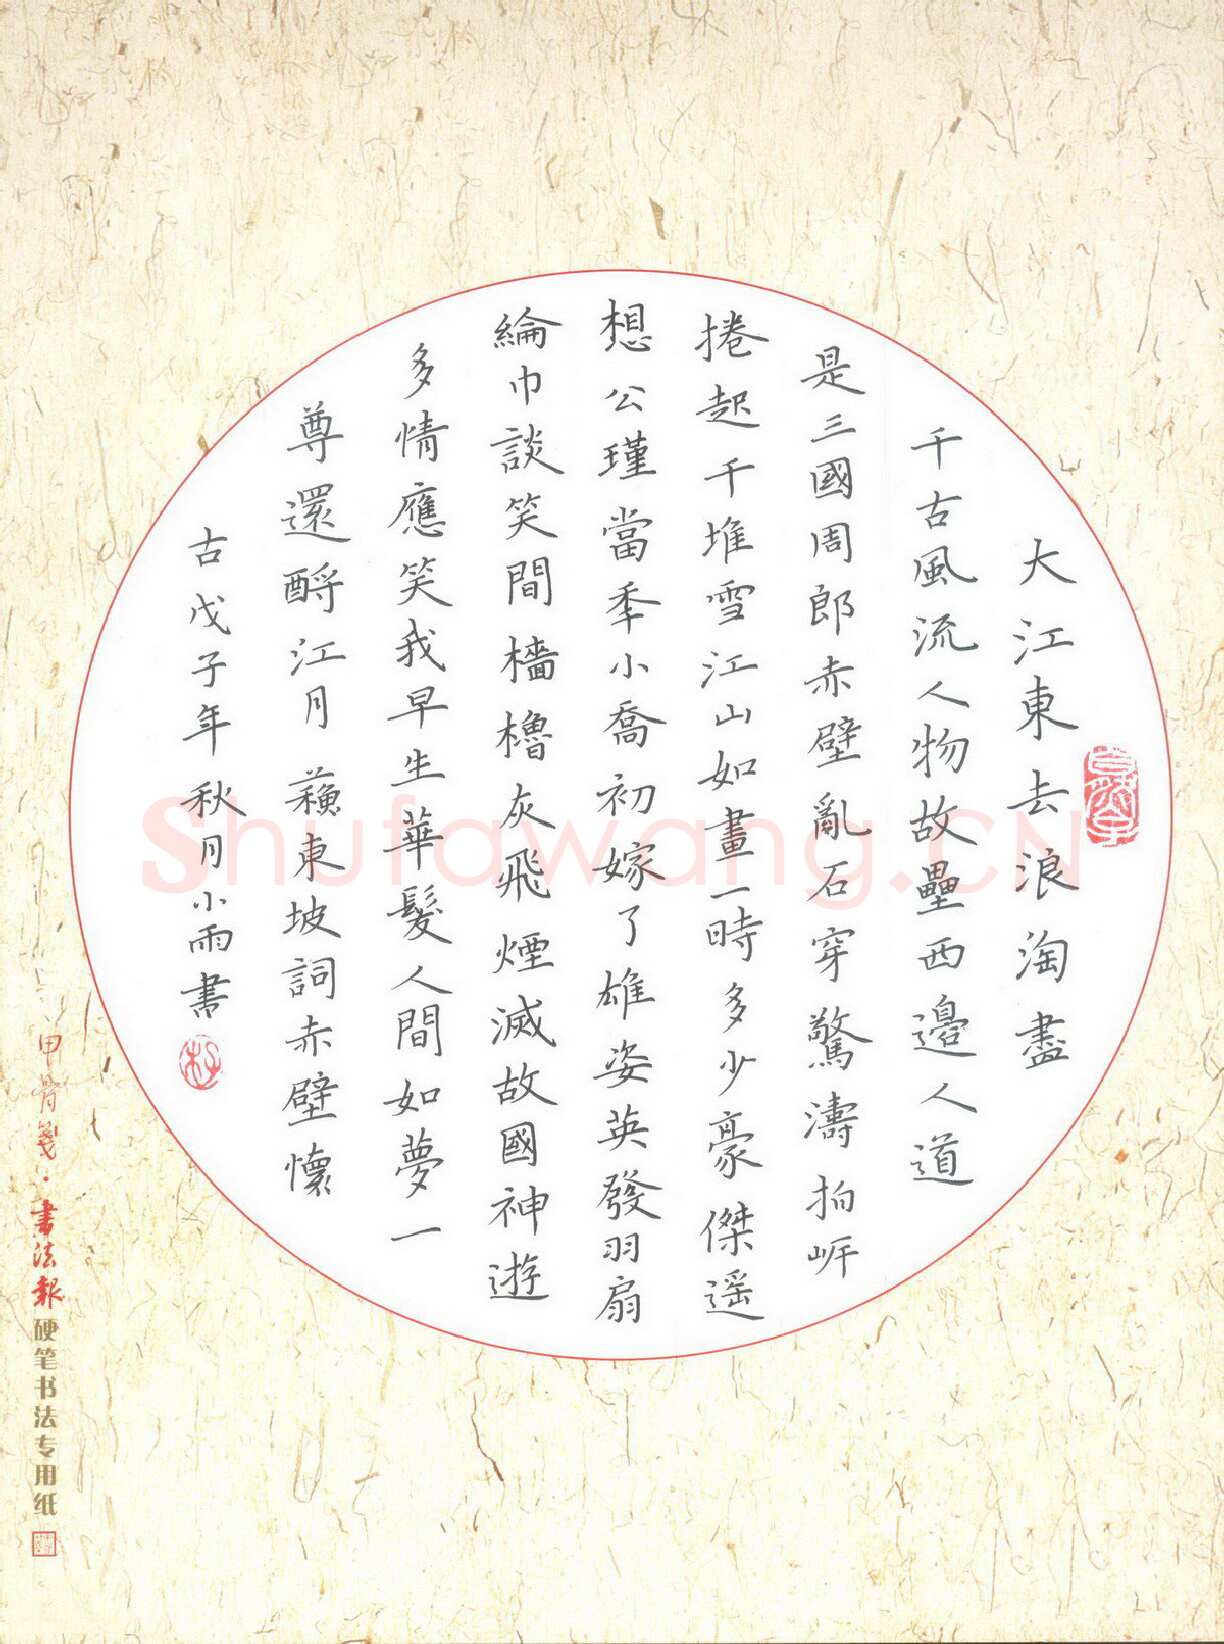 大江東去浪淘盡
千古風流人物故壘西邊人道
是三國周郎赤壁亂石穿驚濤拍岸
捲起千堆雪江山如畫一時多少豪傑遥
想公瑾當年小喬初嫁了雄姿英發羽扇
綸巾談笑間檣櫓灰飛煙滅故國神遊
多情應笑我早生華髮人間如夢一
尊還酹江月 蘇東坡詞赤壁懷
古戊子年秋月小雨書
甲骨箋·書法報硬笔书法专用纸
Shufawang.CN